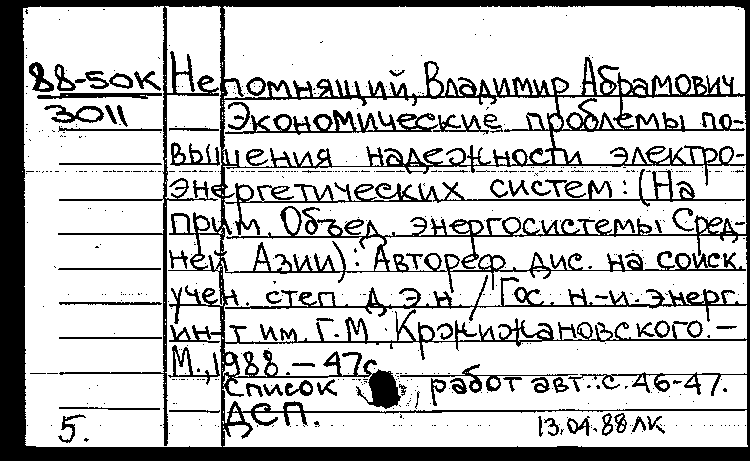 88-50К Непомнящий, Владимир Абрамович
3011 Экономические проблемы по-
вышения надежности электро-
энергетических систем: (На
прим. Объед. энергосистемы Сред-
ней Азии): Автореф. дис. на соиск.
учен. степ. д.э.н. / Гос. н.-и. энерг.
ин-т им. Г.М. Кржижановского. –
М., 1988. – 47с
Список работ авт.: с. 46-47.
ДСП.
5. 13.04.88 ЛК